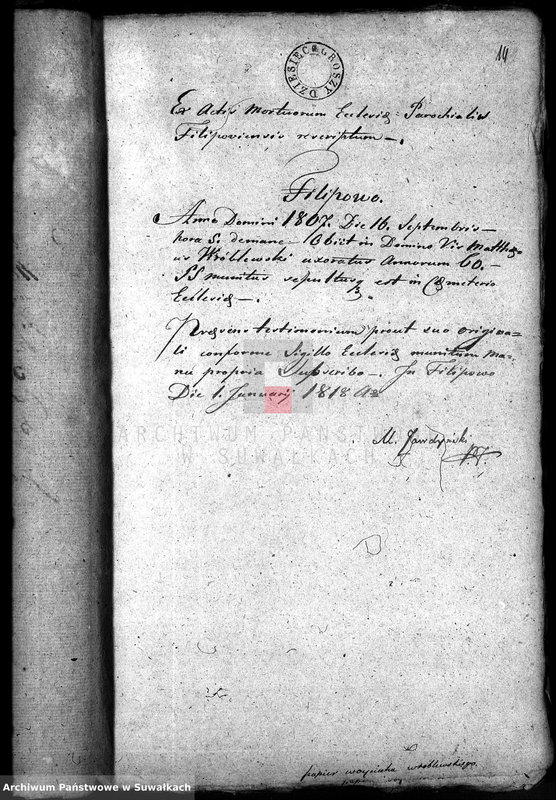 14
DZIESIĘĆ GROSZY
Ex Actis Mortuorum Ecclesiæ Parochialis
Filipoviensis rescriptum —.
Filipowo.
Anno Domini 1807. Die 16. Septembris —
hora 5. demane — Obiit in Domino Vir Matthæ-
us Wróblewski uxoratus Annorum 60. —
SS munitus sepultus est in Cæmeterio
Ecclesiæ —.
Præsens testimonium prout suo origina-
li conforme Sigillo Ecclesiæ munitum ma-
nu propria Subscribo —. In Filipowo
Die 1. Januarij 1818 A
M.
ARCHIWUM PAŃSTWOWE
W SUWAŁKACH
papier woyciecha Wroblewskiego
Archiwum Państwowe w Suwałkach